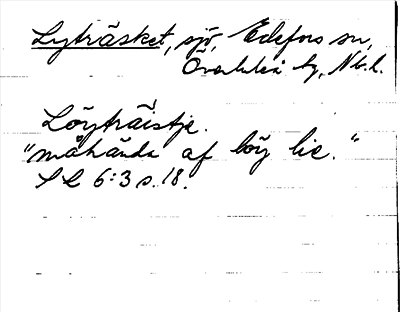 Lyträsket, sjö, Edefors sn,
Överluleå by, Nb.l.
Löyträistje.
"måhända af löy lie."
S L 6:3 s. 18.